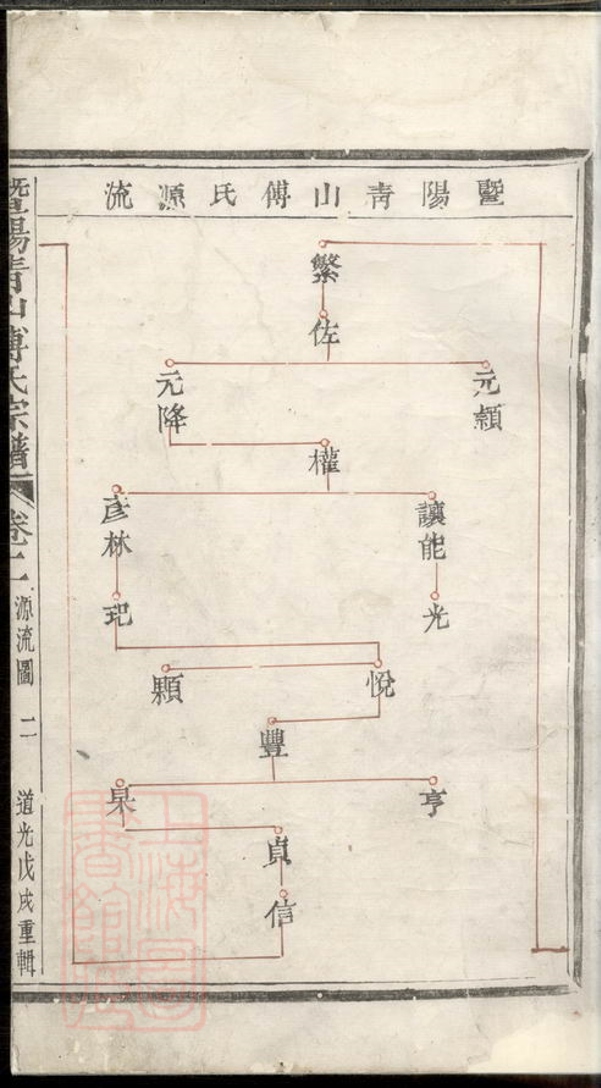 暨陽青山傅氏源流
繁
佐
元頴
元降
權
讓能
彦林
光
玘
悅
顯
豐
亨
杲
貞
信
暨陽青山傅氏宗譜
卷二
源流圖
二
道光戊戌重輯
上海圖書館藏